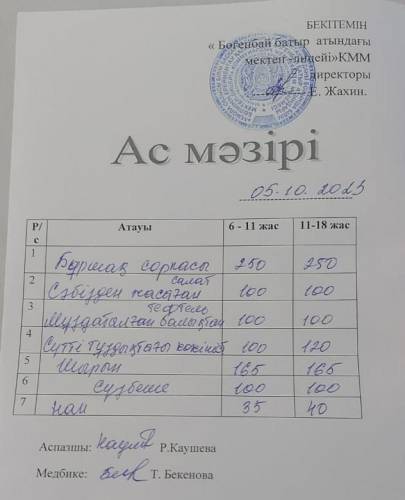 БЕКІТЕМІН
« Бөгенбай батыр атындағы
мектеп -лицейі»КММ
директоры
Е. Жахин.
Ас мәзірі
05.10.2023
Р/с Атауы 6 - 11 жас 11-18 жас
1 Бұршақ сорпасы 250 250
2 Сәбізден жасалған салат 100 100
3 Мұздатылған балықтан тефтель 100 100
4 Сүтті тұздықтағы көкөніс 100 120
5 Шырын 165 165
6 Сүзбеше 100 100
7 Нан 35 40
Аспазшы: Р.Каушева
Медбике: Т. Бекенова